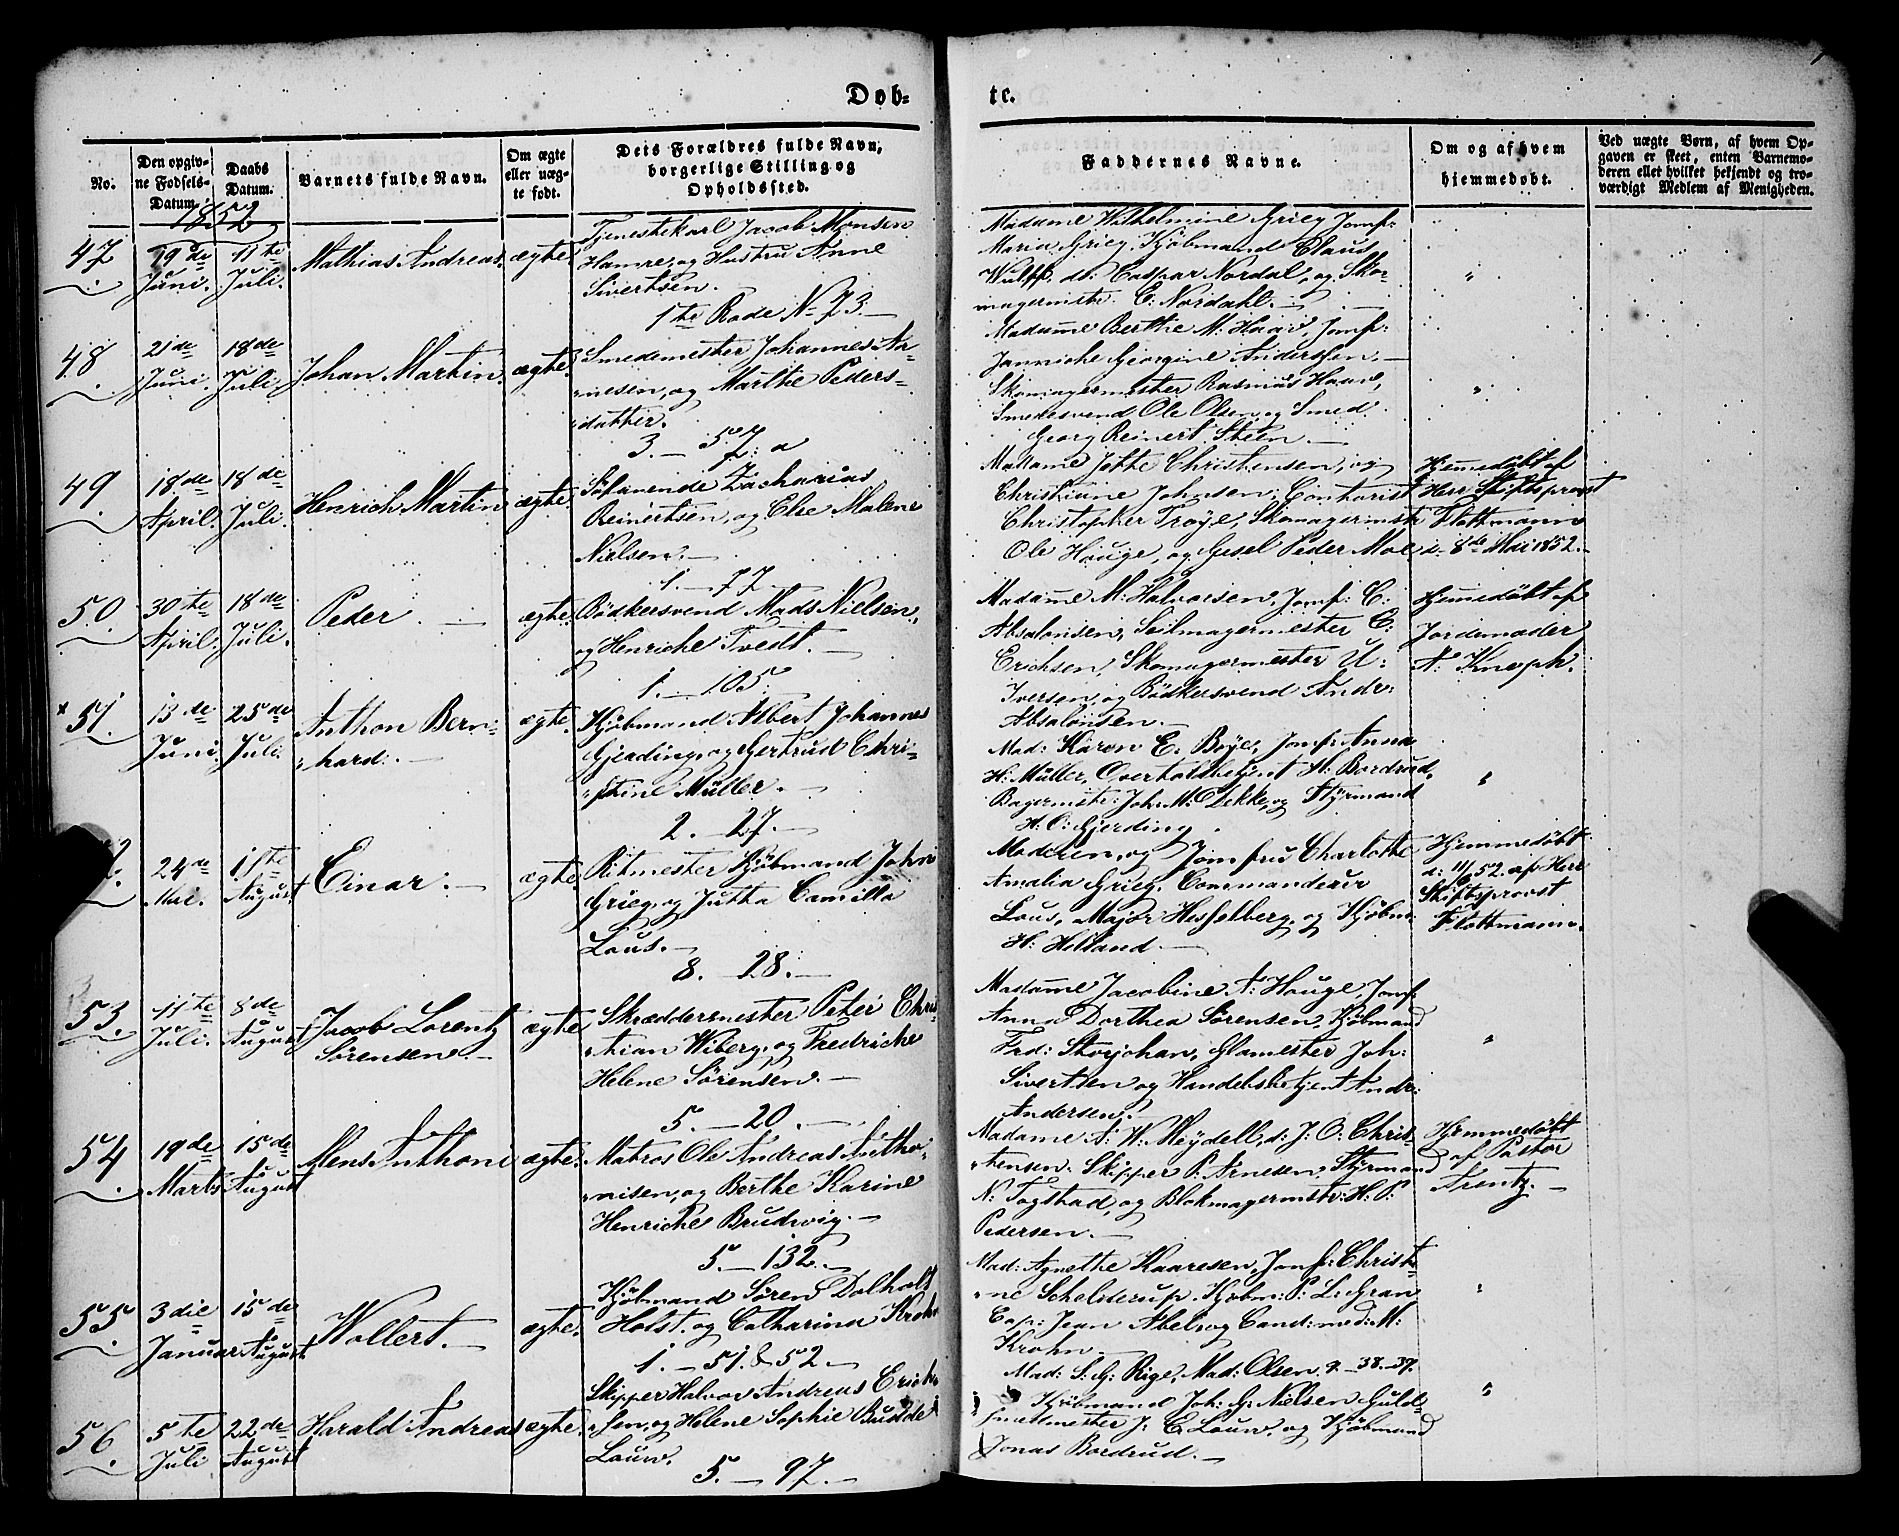 Døb-
te.
No.
Den opgiv-
ne Fødsels-
Datum.
Daabs
Datum.
Barnets fulde Navn.
Om ægte
eller uæg-
te født.
Dets Forældres fulde Navn,
borgerlige Stilling og
Opholdssted.
Faddernes Navne.
Om og af hvem
hjemmedøbt.
Ved uægte Børn, af hvem Op-
gaven er skeet, enten Barnemo-
deren eller hvilket bekjendt og tro-
værdigt Medlem af Menigheden.
1852
47
19de
Juni.
11te
Juli.
Mathias Andreas.
ægte
Tjenestekarl Jacob Monsen
Hamre, og Hustru Anne
Sivertsen.
1te Rode No 73
Madame Wilhelmine Grieg, Jomf:
Maria Grieg, Kjøbmand Claus
Wulff, do: Caspar Nordal, og Sko-
magermstr: C: Nordahl.
48.
21de
Juni.
18de
Juli
Johan Martin.
ægte
Smedemester Johannes Ar-
nesen, og Marthe Peders-
datter.
3. 57. a
Madame Berthe M: Haave, Jomf:
Janniche Georgine Anderssen
Skomagermester Rasmus Haave,
Smedesvend Ole Olsen, og Smed
Georg Reinert Steen.
49.
18de
April.
18de
Juli.
Henrich Martin
ægte
Søfarende Zacharias
Reinertsen, og Else Malene
Nielsen.
1. 77.
Madame Jette Christensen, og
Christiane Johnsen, Contorist
Christopher Troye, Skomagermstr
Ole Hauge, og Gesel Peder Moe
Hjemmedøbt af
Herr Stiftsprovst
Flottmann
d. 8de Mai 1852.
50.
30te
April.
18de
Juli.
Peder.
ægte.
Bødkersvend Mads Nielsen,
og Henriche Tvedt.
1. 105
Madame M: Halvorsen, Jomf: C:
Absalonsen, Seilmagermester C:
Erichsen, Skomagermester U:
Iversen, og Bødkersvend Andr:
Absalonsen.
Hjemmedøbt af
Jordemoder
A: Knoph.
x 51.
13de
Juni.
25de
Juli.
Anthon Bern-
hard.
ægte.
Kjøbmand Albert Johannes
Gjerding, og Gertrud Chri-
stine Müller.
2. 27.
Mad: Karen E. Bøye, Jomf: Anna
H: Müller, Overtoldbetjent H: Bordrud,
Bagermstr: Joh: M: Dekke, og Styrmand
H: O: Gjerding.
24de
Mai.
1ste
August
Einar.
ægte.
Ritmester Kjøbmand John
Grieg, og Jutta Camilla
Lous.
8. 28.
Moderen, og Jomfru Charlotte
Amalia Grieg, Commandeur
Lous, Major Hesselberg, og Kjøbm:
H: Helland.
Hjemmedøbt
d: 11/6 52. af Herr
Stiftsprovst
Flottmann.
53.
11te
Juli.
8de
August
Jacob Lorentz
Sørensen.
ægte
Skræddermester Peter Chri-
stian Wiberg, og Fredriche
Helene Sørensen.
5. 20.
Madame Jacobine A: Hauge, Jomf:
Anna Dorthea Sørensen, Kjøbmand
Frd: Storjohan, Glamester Joh:
Sivertsen og Handelsbetjent Andr:
Andersen.
54.
19de
Marts
15de
August
Mens Anthoni
ægte.
Matros Ole Andreas Antho-
nisen, og Berthe Karine
Henriche Brudvig.
5. 132.
Madame A: W: Heydell, do: J: O: Chris-
tensen. Skipper P: Arnesen, Styrmand
N: Togstad, og Blokmagermstr: H: P:
Pedersen.
Hjemmedøbt
af Pastor
Frentz.
55
3die
Januar
15de
August
Wollert.
ægte.
Kjøbmand Søren Dalholt
Holst, og Catharina Krohn
1. 51. & 52.
Mad: Agnethe Kaaresen, Jomf: Christi-
ne Schelderup, Kjøbm: P: L: Gran
Cap: Jean Abel, og Cand: med: M:
Krohn.
56.
5te
Juli
22de
August
Harald Andreas
ægte.
Skipper Halvor Andreas Erich-
sen, og Helene Sophie Budde
Louw.
5. 97.
Mad: S: G: Rige, Mad: Olsen, 9. 38. 37.
Kjøbmand Joh: G: Nielsen, Guld-
smedmester J: C: Louw, og Kjøbmand
Jonas Bordrud.